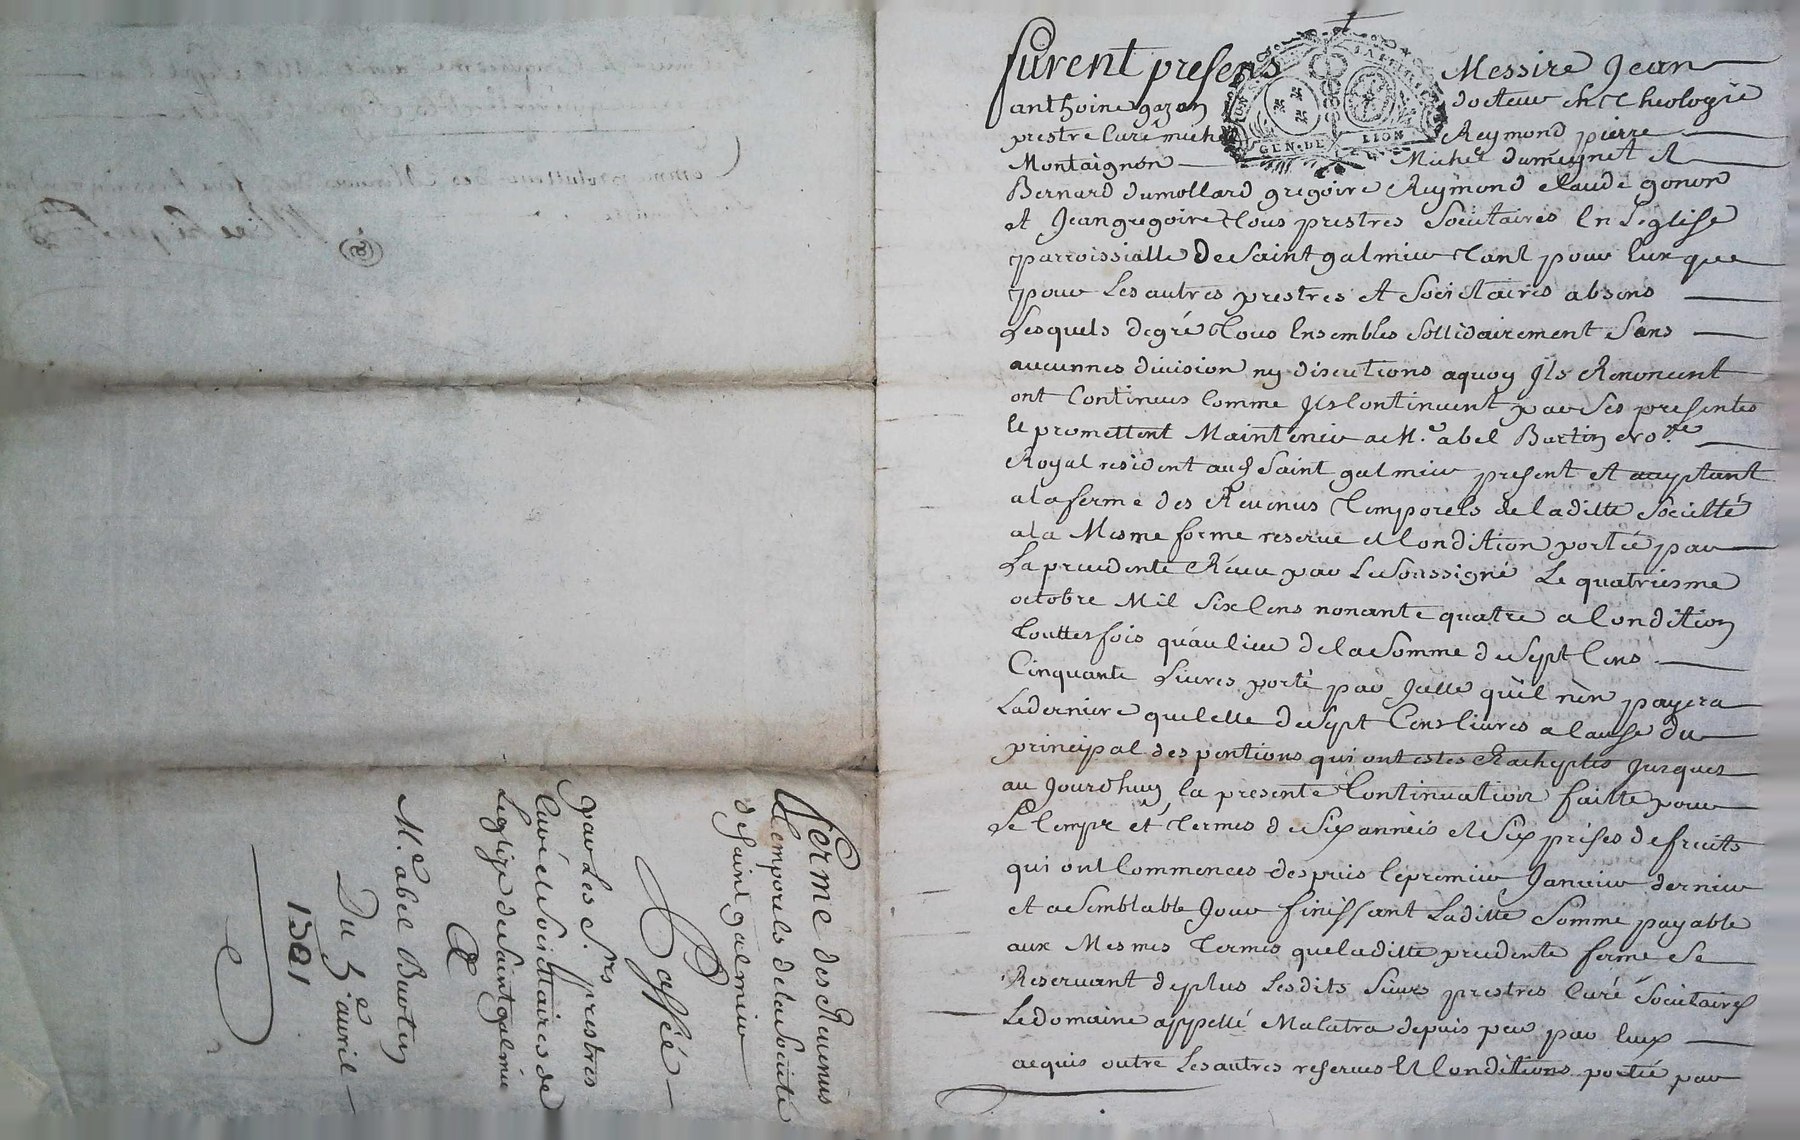 furent presens Messire Jean
anthoine gazan docteur En Theologie
prestre Curé miche Reymond pierre
Montaignon Michel dumeynet et
Bernard dumollard gregoire Reymond claude gonon
et Jean gregoire Tous prestres Societaires En Leglise
parroissialle de Saint galmier Tant pour Eux que
pour Les autres prestres et Societaires absens
Lesquels de gré Tous Ensembles Sollidairement Sans
aucunnes division ny discutions a quoy Ils Renoncent
ont Continues Comme Ils Continuent par Ses presentes
Et promettent Maintenir a Me abel Burtin no.re
Royal resident aud Saint galmier present et acceptant
a la ferme des Revenus Temporels de laditte Société
a la Mesme forme reserve et Condition portée par
La precedente Receu par Le Soussigné Le quatriesme
octobre Mil Six Cens nonante quatre a Condition
Touttesfois qu'au lieu de la Somme de Sept Cens
Cinquante Livres porté par Icelle qu'il n'en payera
La derniere que celle de Sept Cens livres a Cause du
principal des pentions qui ont estes Racheptés Jusques
au Jourd'huy la presente Continuation faitte pour
Le Temps et Termes de Six années et Six prises de fruits
qui ont Commences despuis le premier Janvier dernier
et a Semblable Jour finissant Laditte Somme payable
aux Mesmes Termes que laditte precedente ferme Se
Reservant de plus Lesdits Sieurs prestres Curé Societaires
Le domaine appellé Malatra depuis peu par Eux
acquis outre Les autres reserves Et Conditions portée par
GEN. DE LION
Ferme des Revenus
Temporels de la Société
de Saint galmier
Passé
par Les Srs prestres
Curé et Societaires de
Leglize de Saint galmie
A
Me abel Burtin
Du 5e avril